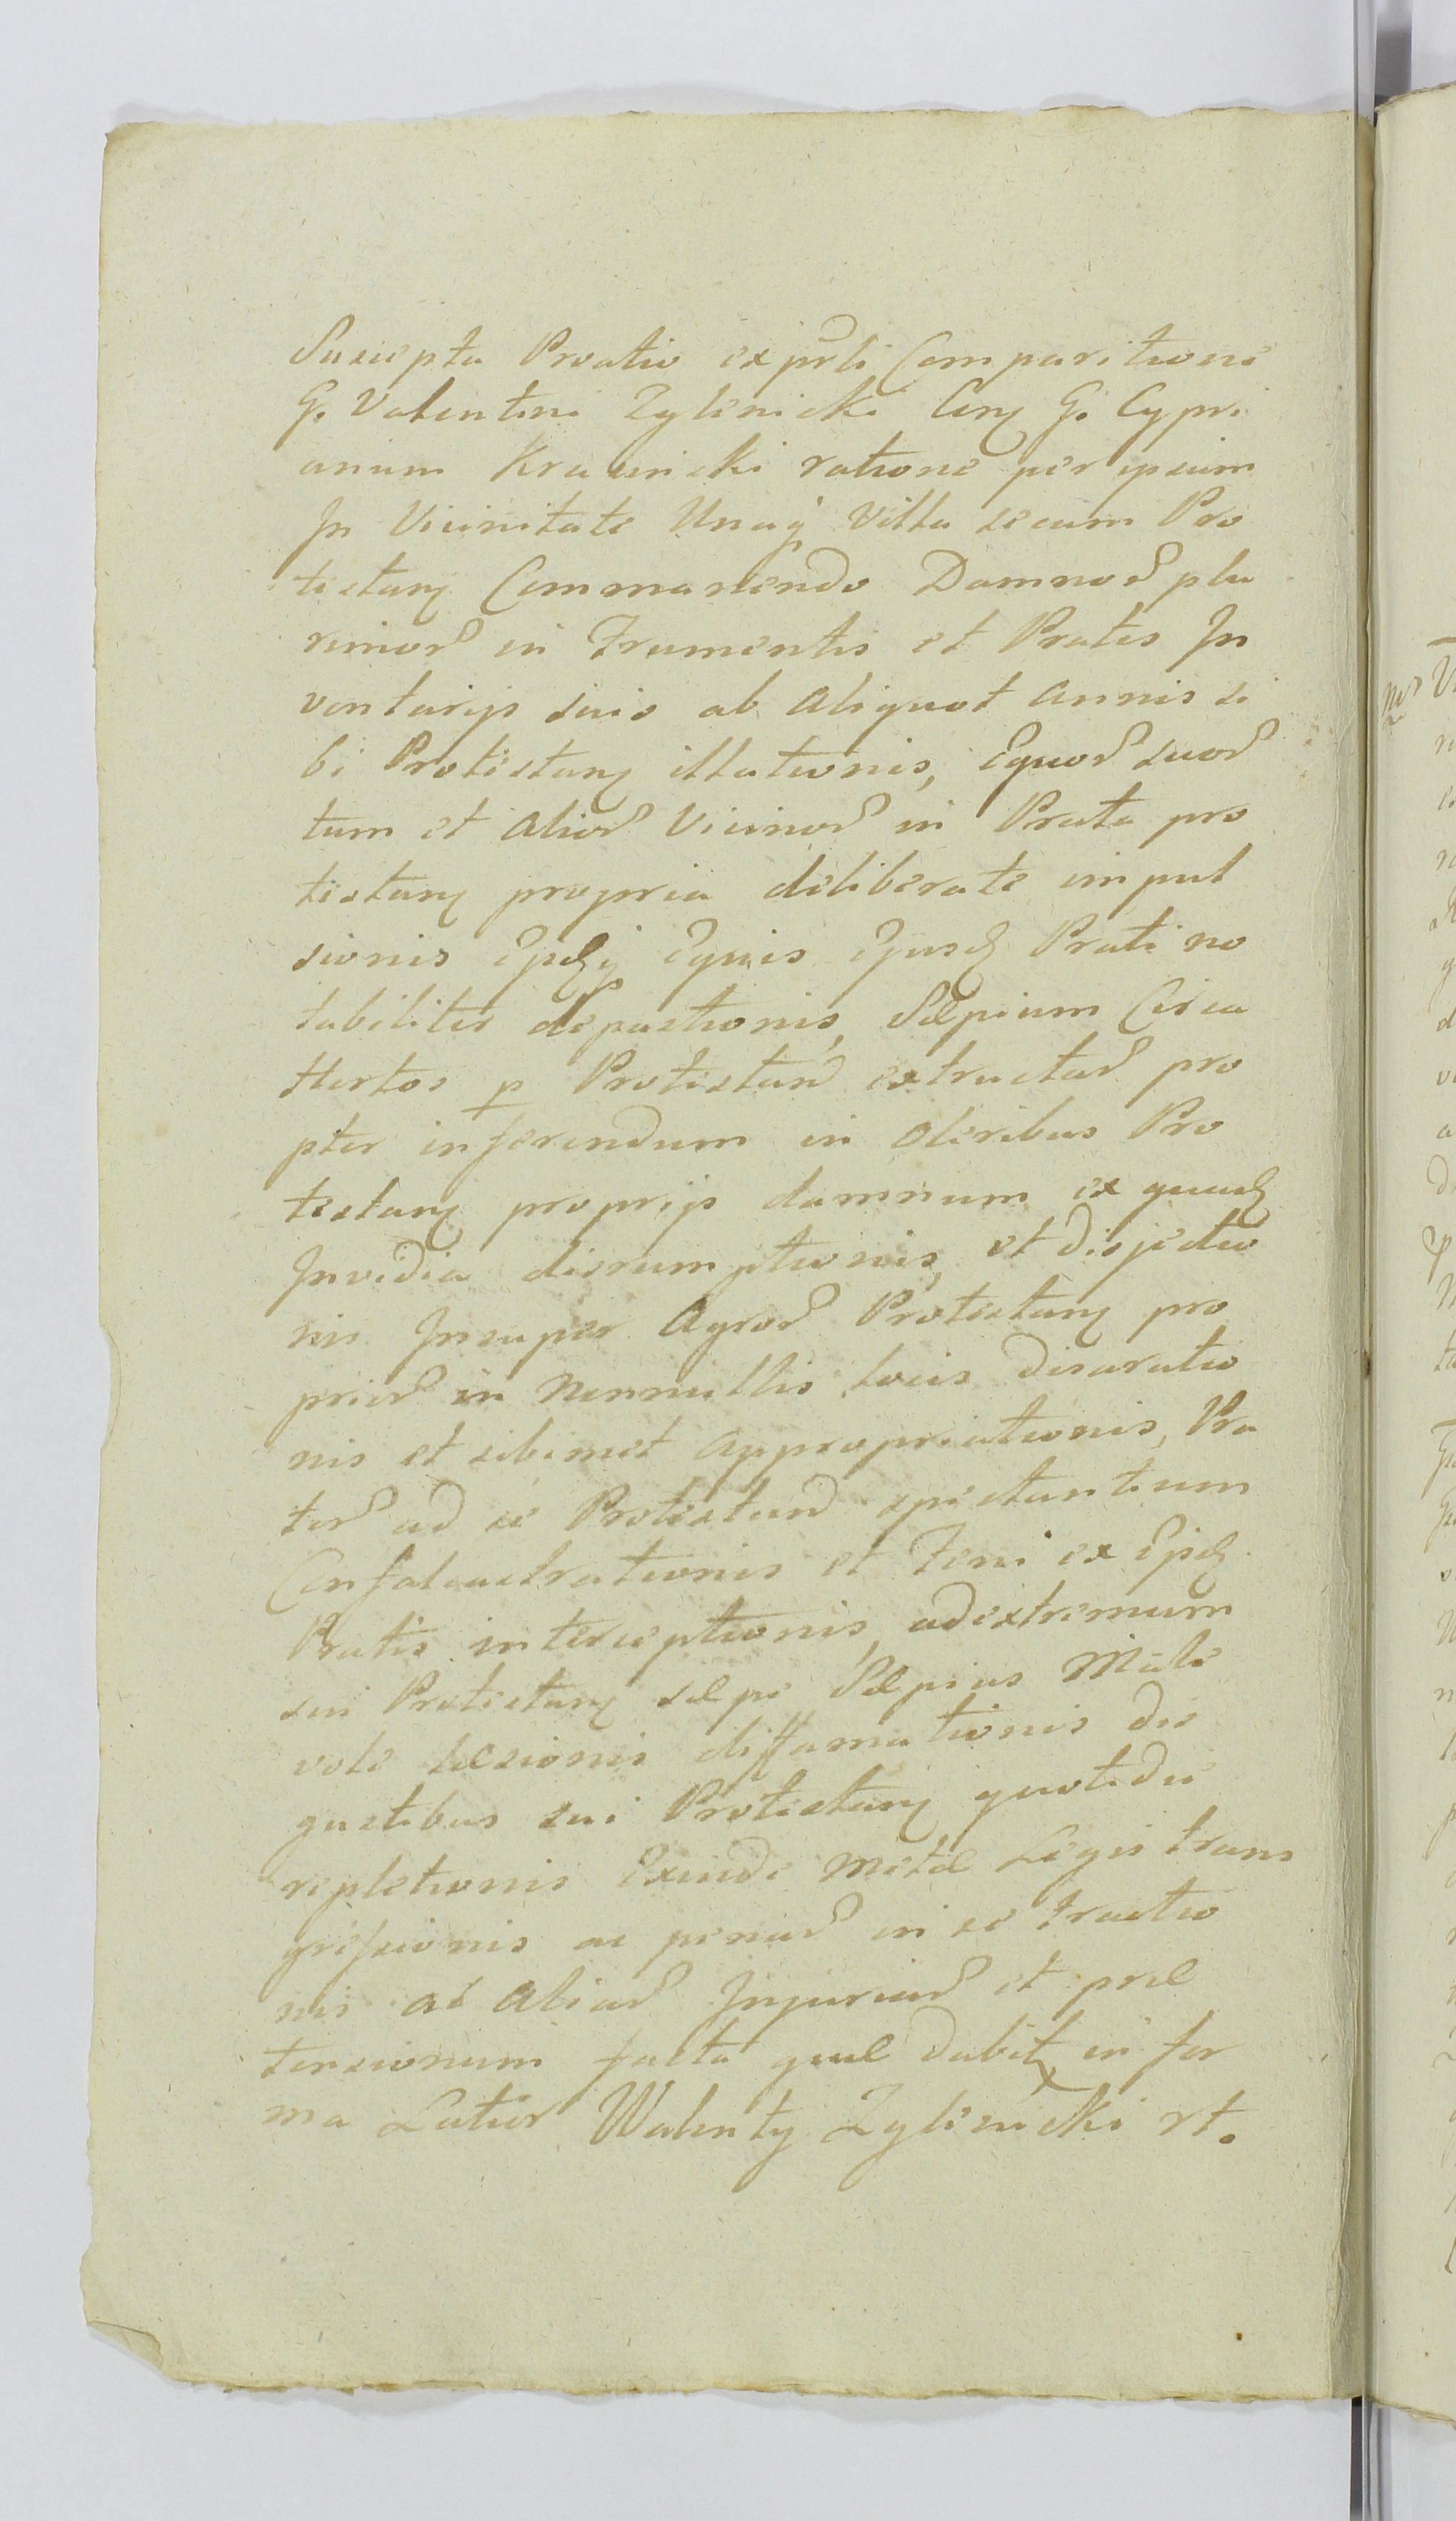 Suscepta Protio ex prsli Comparitione
G. Valentini Zylenicki Con G. Cypri
anum Krasnicki ratione per ipsum
In Vicinitate Unaq Villa secum Pro
testan Commanendo Damnor plu
rimor in Frumentis et Pratis In
ventarijs suis ab aliquot annis si
bi Protestan illationis, Equor suor
tum et alior Vicinor in Prata pro
testan propria deliberate impul
sionis Ejsdq Equis Ejusd Prati no
tabiliter depastionis, Sæpium Circa
Hortos p Protestand extructar pro
pter inferendum in Oleribus Pro
testan proprijs damnum ex quad
Invidia disrumptionis, et disjectio
nis Insuper Agror Protestan pro
prior in Nonnullis locis disaratio
nis et sibimet appropriationis, Pra
tor ad se Protestand spectantium
Confalcastrationis et Feni ex Ejsd
Pratis interceptionis, ad extremum
sui Protestan sæpe Sæpius Male
vole læsionis diffamationis dis
gustibus sui Protestan quotidie
repletionis Exinde Metæ Legis trans
gressionis ac penar in se tractio
nis ac aliar Injuriar et præ
tensionum facta quæ dabit in for
ma Latior Walenty Zylenicki rt.